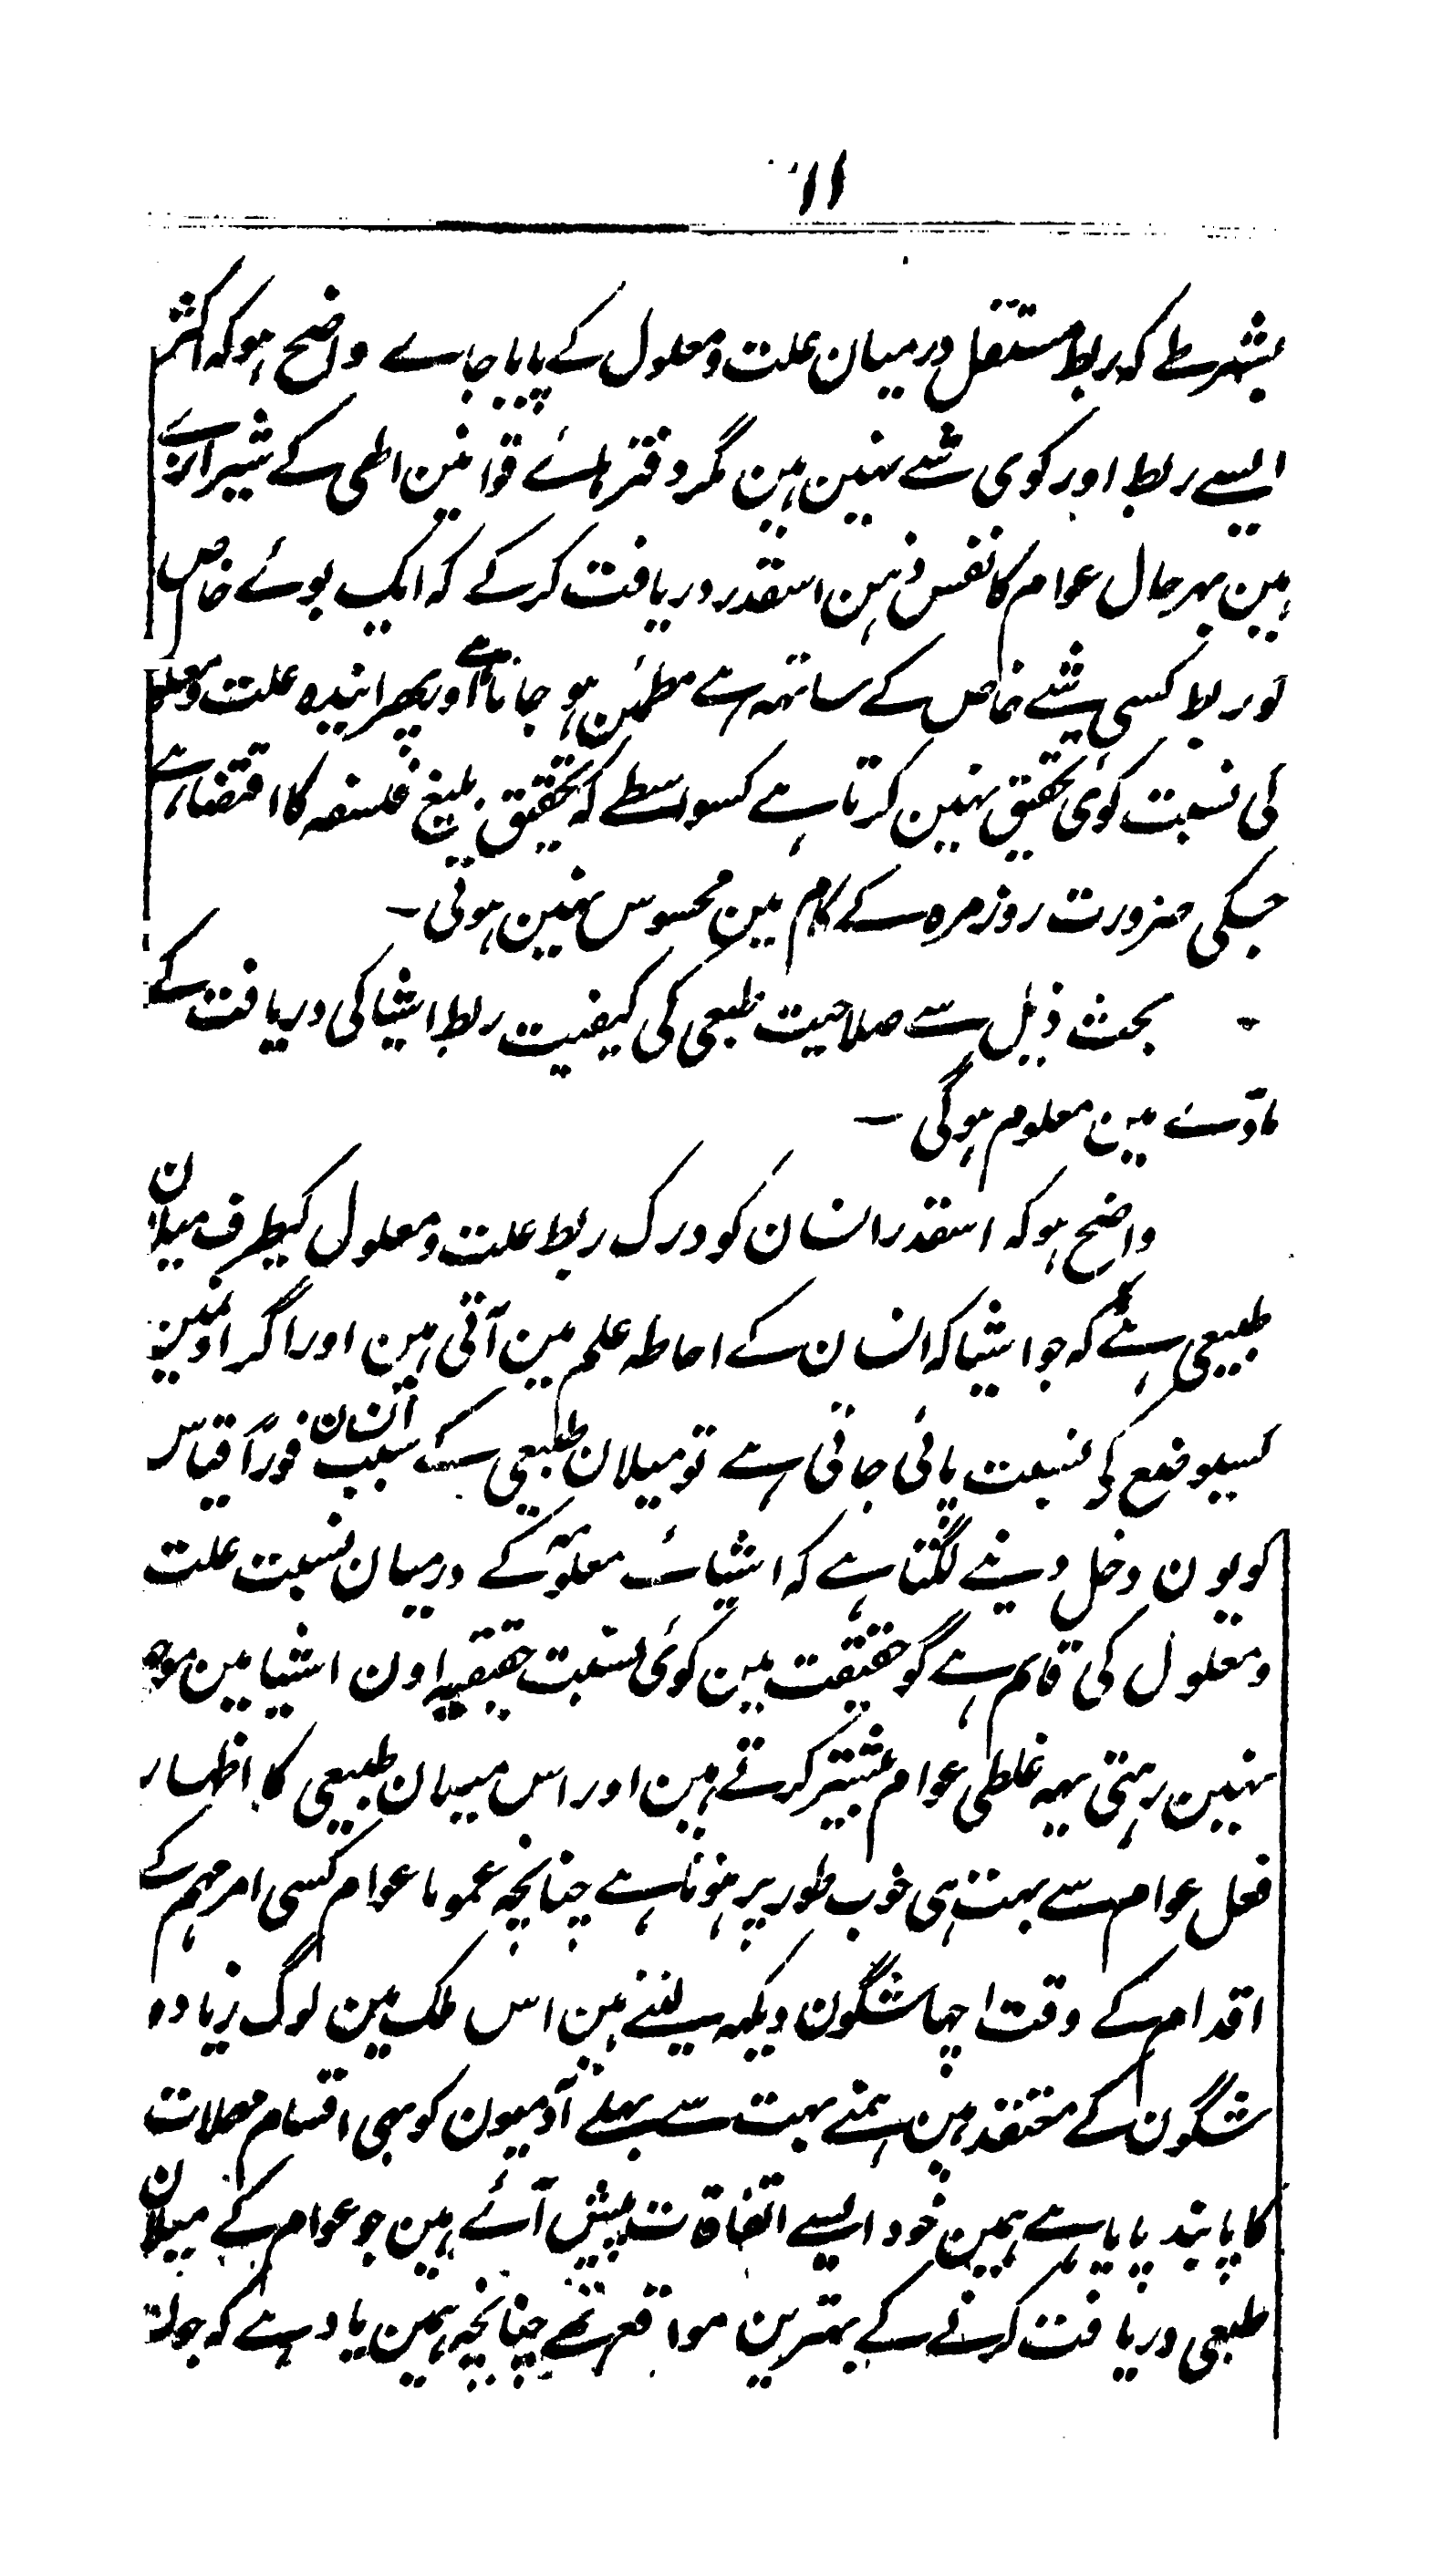 ۱۱
بشرطے کہ ربط مستقل درمیان علت و معلول کے پایا جاے واضح ہو کہ اکثر
ایسے ربط اور کوی شے نہین ہین مگر دفتر ہاے قوانین الٰہی کے شیرازے
ہین بہر حال عوام کا نفس ذہن اسقدر دریافت کر کے کہ ایک بوئے خاص
کو ربط کسی شے خاص کے ساتہہ ہے مطمئن ہو جاتا ہے اور پھر ایندہ علت و معلول
کی نسبت کوی تحقیق نہین کرتا ہے کسواسطے کہ تحقیق بلیغ فلسفہ کا اقتضا ہے
جسکی ضرورت روزمرہ کے کام مین محسوس نہین ہوتی ۔
بحث ذیل سے صلاحیت طبعی کی کیفیت ربط اشیا کی دریافت کے
مادّے مین معلوم ہو گی ۔
واضح ہو کہ اسقدر انسان کو درک ربط علت و معلول کیطرف میلان
طبیعی ہے کہ جو اشیا کہ انسان کے احاطہ علم مین آتی ہین اور اگر اونمین
کسیوضع کی نسبت پائی جاتی ہے تو میلان طبیعی کے سبب انسان فوراً قیاس
کو یون دخل دینے لگتا ہے کہ اشیاے معلومہ کے درمیان نسبت علت
و معلول کی قایم ہے گو حقیقت مین کوی نسبت حقیقیہ اون اشیا مین موجود
نہین رہتی یہہ غلطی عوام بیشتر کرتے ہین اور اس میلان طبیعی کا اظہار
فعل عوام سے بہت ہی خوب طور پر ہوتا ہے چنانچہ عموما عوام کسی امر مہم کے
اقدام کے وقت اچہا شگون دیکہہ لیتے ہین اس ملک مین لوگ زیادہ
شگون کے معتقد ہین ہمنے بہت سے بہلے آدمیون کو بہی اقسام مہملات
کا پابند پایا ہے ہمین خود ایسے اتفاقات پیش آئے ہین جو عوام کے میلان
طبعی دریافت کرنے کے بہترین مواقع تھے چنانچہ ہمین یاد ہے کہ